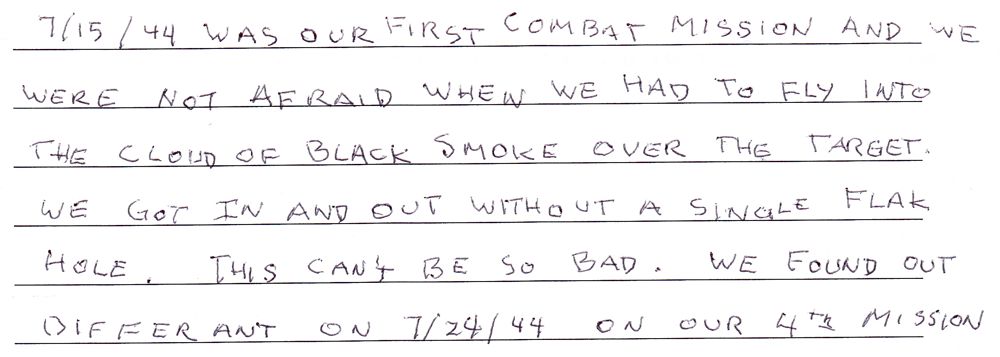 7/15/44 WAS OUR FIRST COMBAT MISSION AND WE
WERE NOT AFRAID WHEN WE HAD TO FLY INTO
THE CLOUD OF BLACK SMOKE OVER THE TARGET.
WE GOT IN AND OUT WITHOUT A SINGLE FLAK
HOLE. THIS CAN'T BE SO BAD. WE FOUND OUT
DIFFERANT ON 7/24/44 ON OUR 4TH MISSION